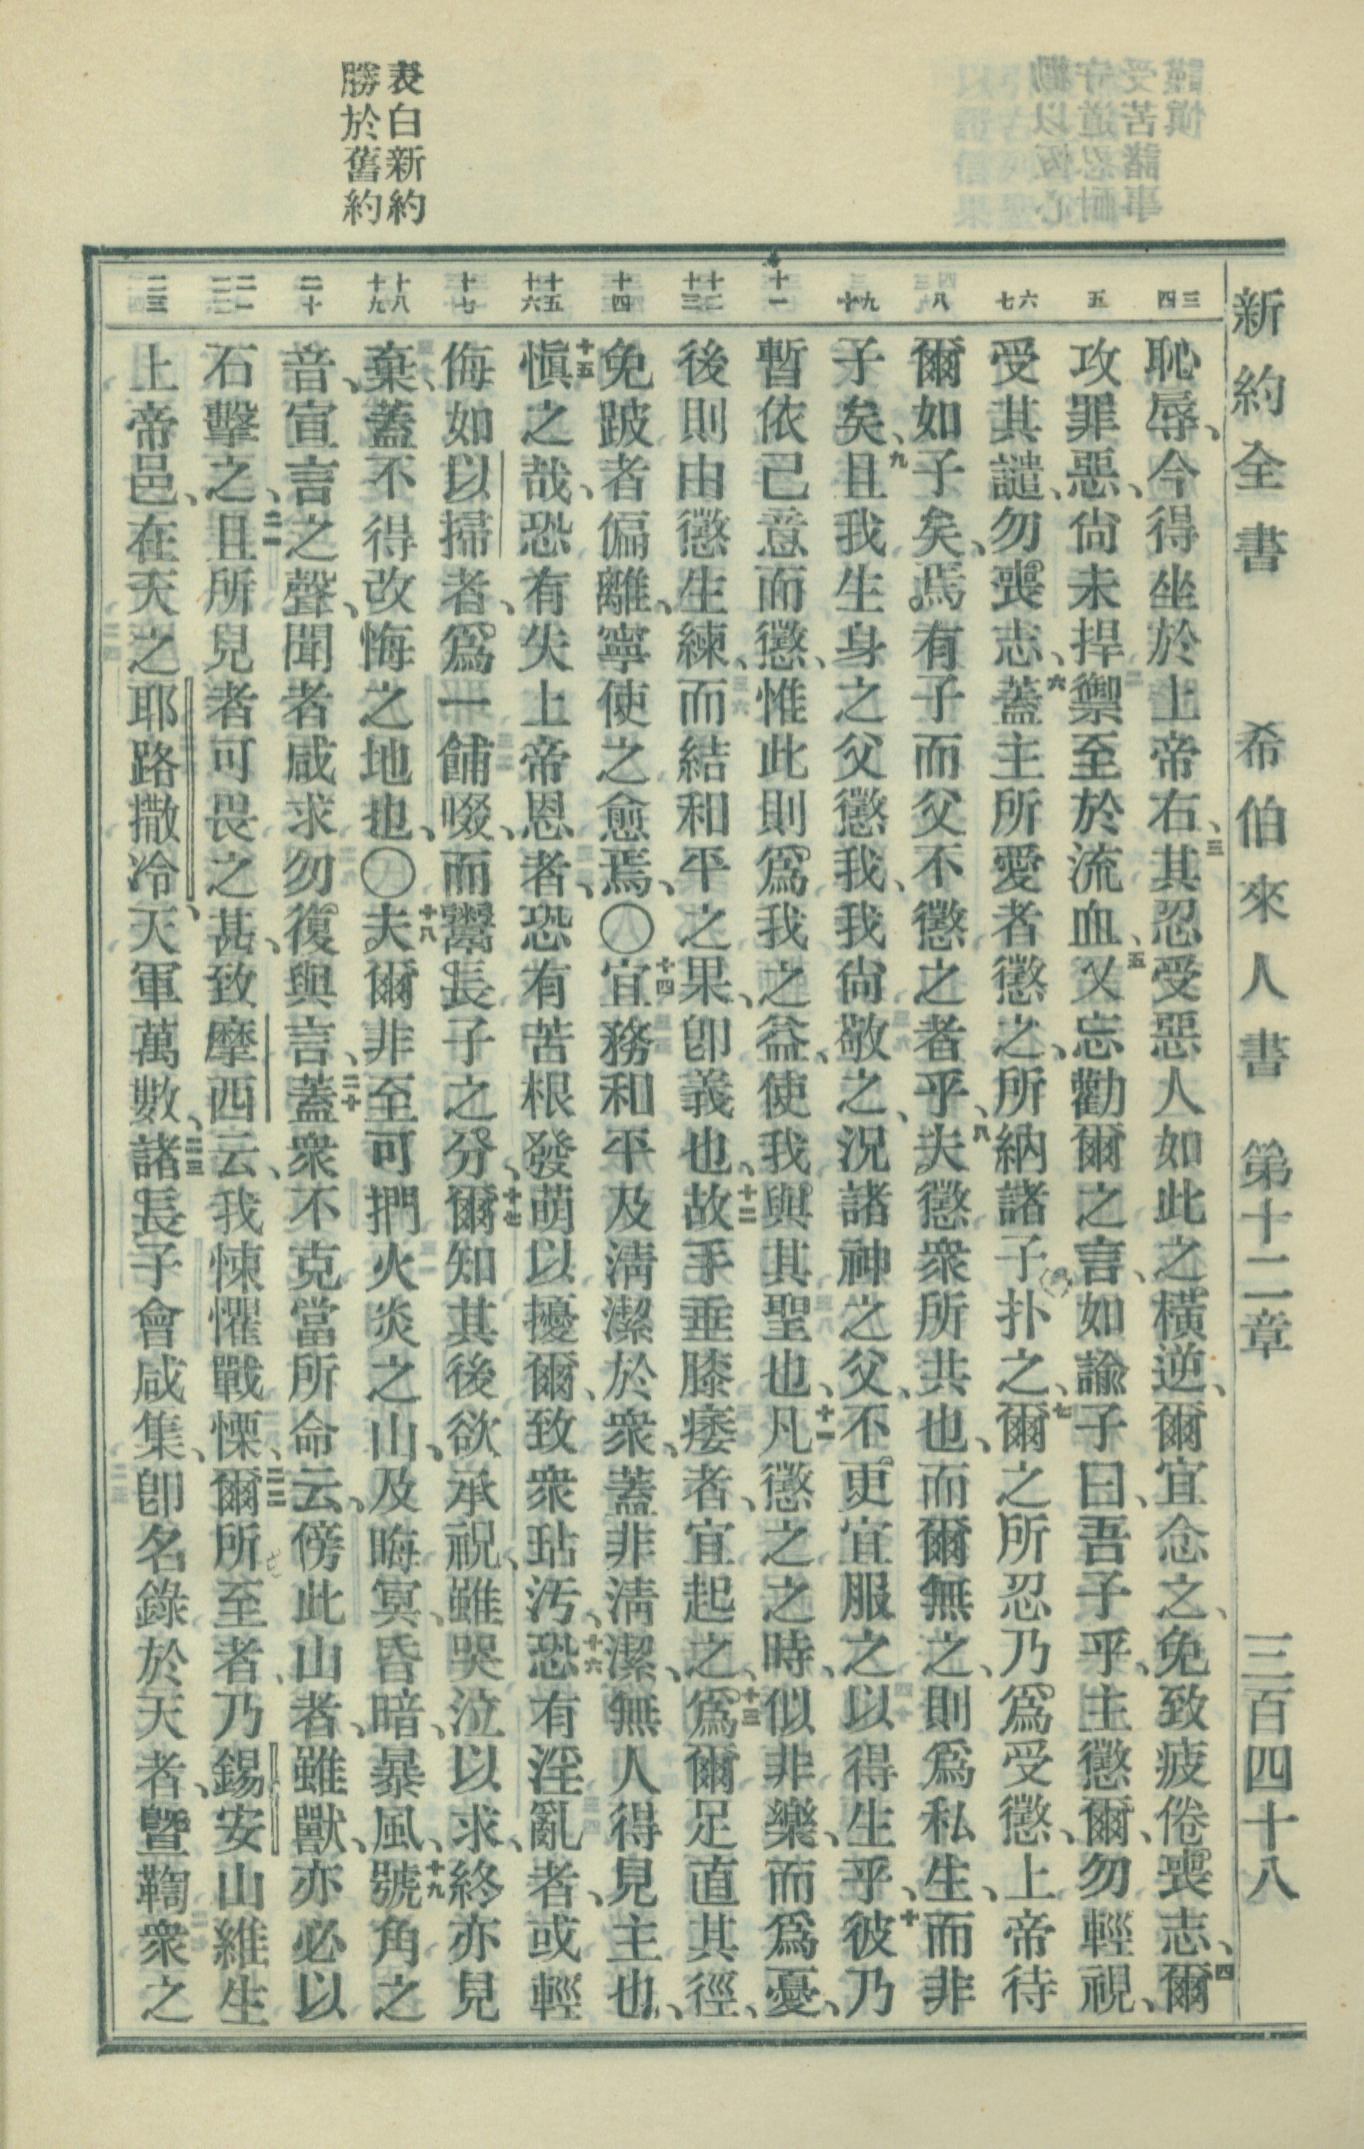 新約全書 希伯來人書 第十二章 三百四十八
表白新約
勝於舊約
三 四 五 六 七 八 九 十 十一 十二 十三 十四 十五 十六 十七 十八 十九 二十 二一 二二 二三
恥辱、今得坐於上帝右、三其忍受惡人如此之橫逆、爾宜念之、免致疲倦喪志、四爾
攻罪惡、尙未捍禦至於流血、五又忘勸爾之言、如諭子曰、吾子乎、主懲爾、勿輕視、
受其譴、勿喪志、六蓋主所愛者懲之、所納諸子扑之、七爾之所忍乃爲受懲、上帝待
爾如子矣、焉有子而父不懲之者乎、八夫懲衆所共也、而爾無之、則爲私生、而非
子矣、九且我生身之父懲我、我尙敬之、況諸神之父、不更宜服之以得生乎、十彼乃
暫依己意而懲、惟此則爲我之益、使我與其聖也、十一凡懲之之時、似非樂、而爲憂、
後則由懲生練、而結和平之果、卽義也、十二故手垂膝痿者、宜起之、十三爲爾足直其徑、
免跛者偏離、寧使之愈焉、〇十四宜務和平及淸潔於衆、蓋非淸潔、無人得見主也、
十五愼之哉、恐有失上帝恩者、恐有苦根發萌以擾爾、致衆玷汚、十六恐有淫亂者、或輕
侮如以掃者、爲一餔啜、而鬻長子之分、十七爾知其後欲承祝、雖哭泣以求、終亦見
棄、蓋不得改悔之地也、〇十八夫爾非至可捫火炎之山、及晦冥、昏暗、暴風、十九號角之
音、宣言之聲、聞者咸求勿復與言、二十蓋衆不克當所命云、傍此山者、雖獸、亦必以
石擊之、二一且所見者可畏之甚、致摩西云、我悚懼戰慄、二二爾所至者、乃錫安山維生
上帝邑、在天之耶路撒冷、天軍萬數、二三諸長子會咸集、卽名錄於天者、曁鞫衆之